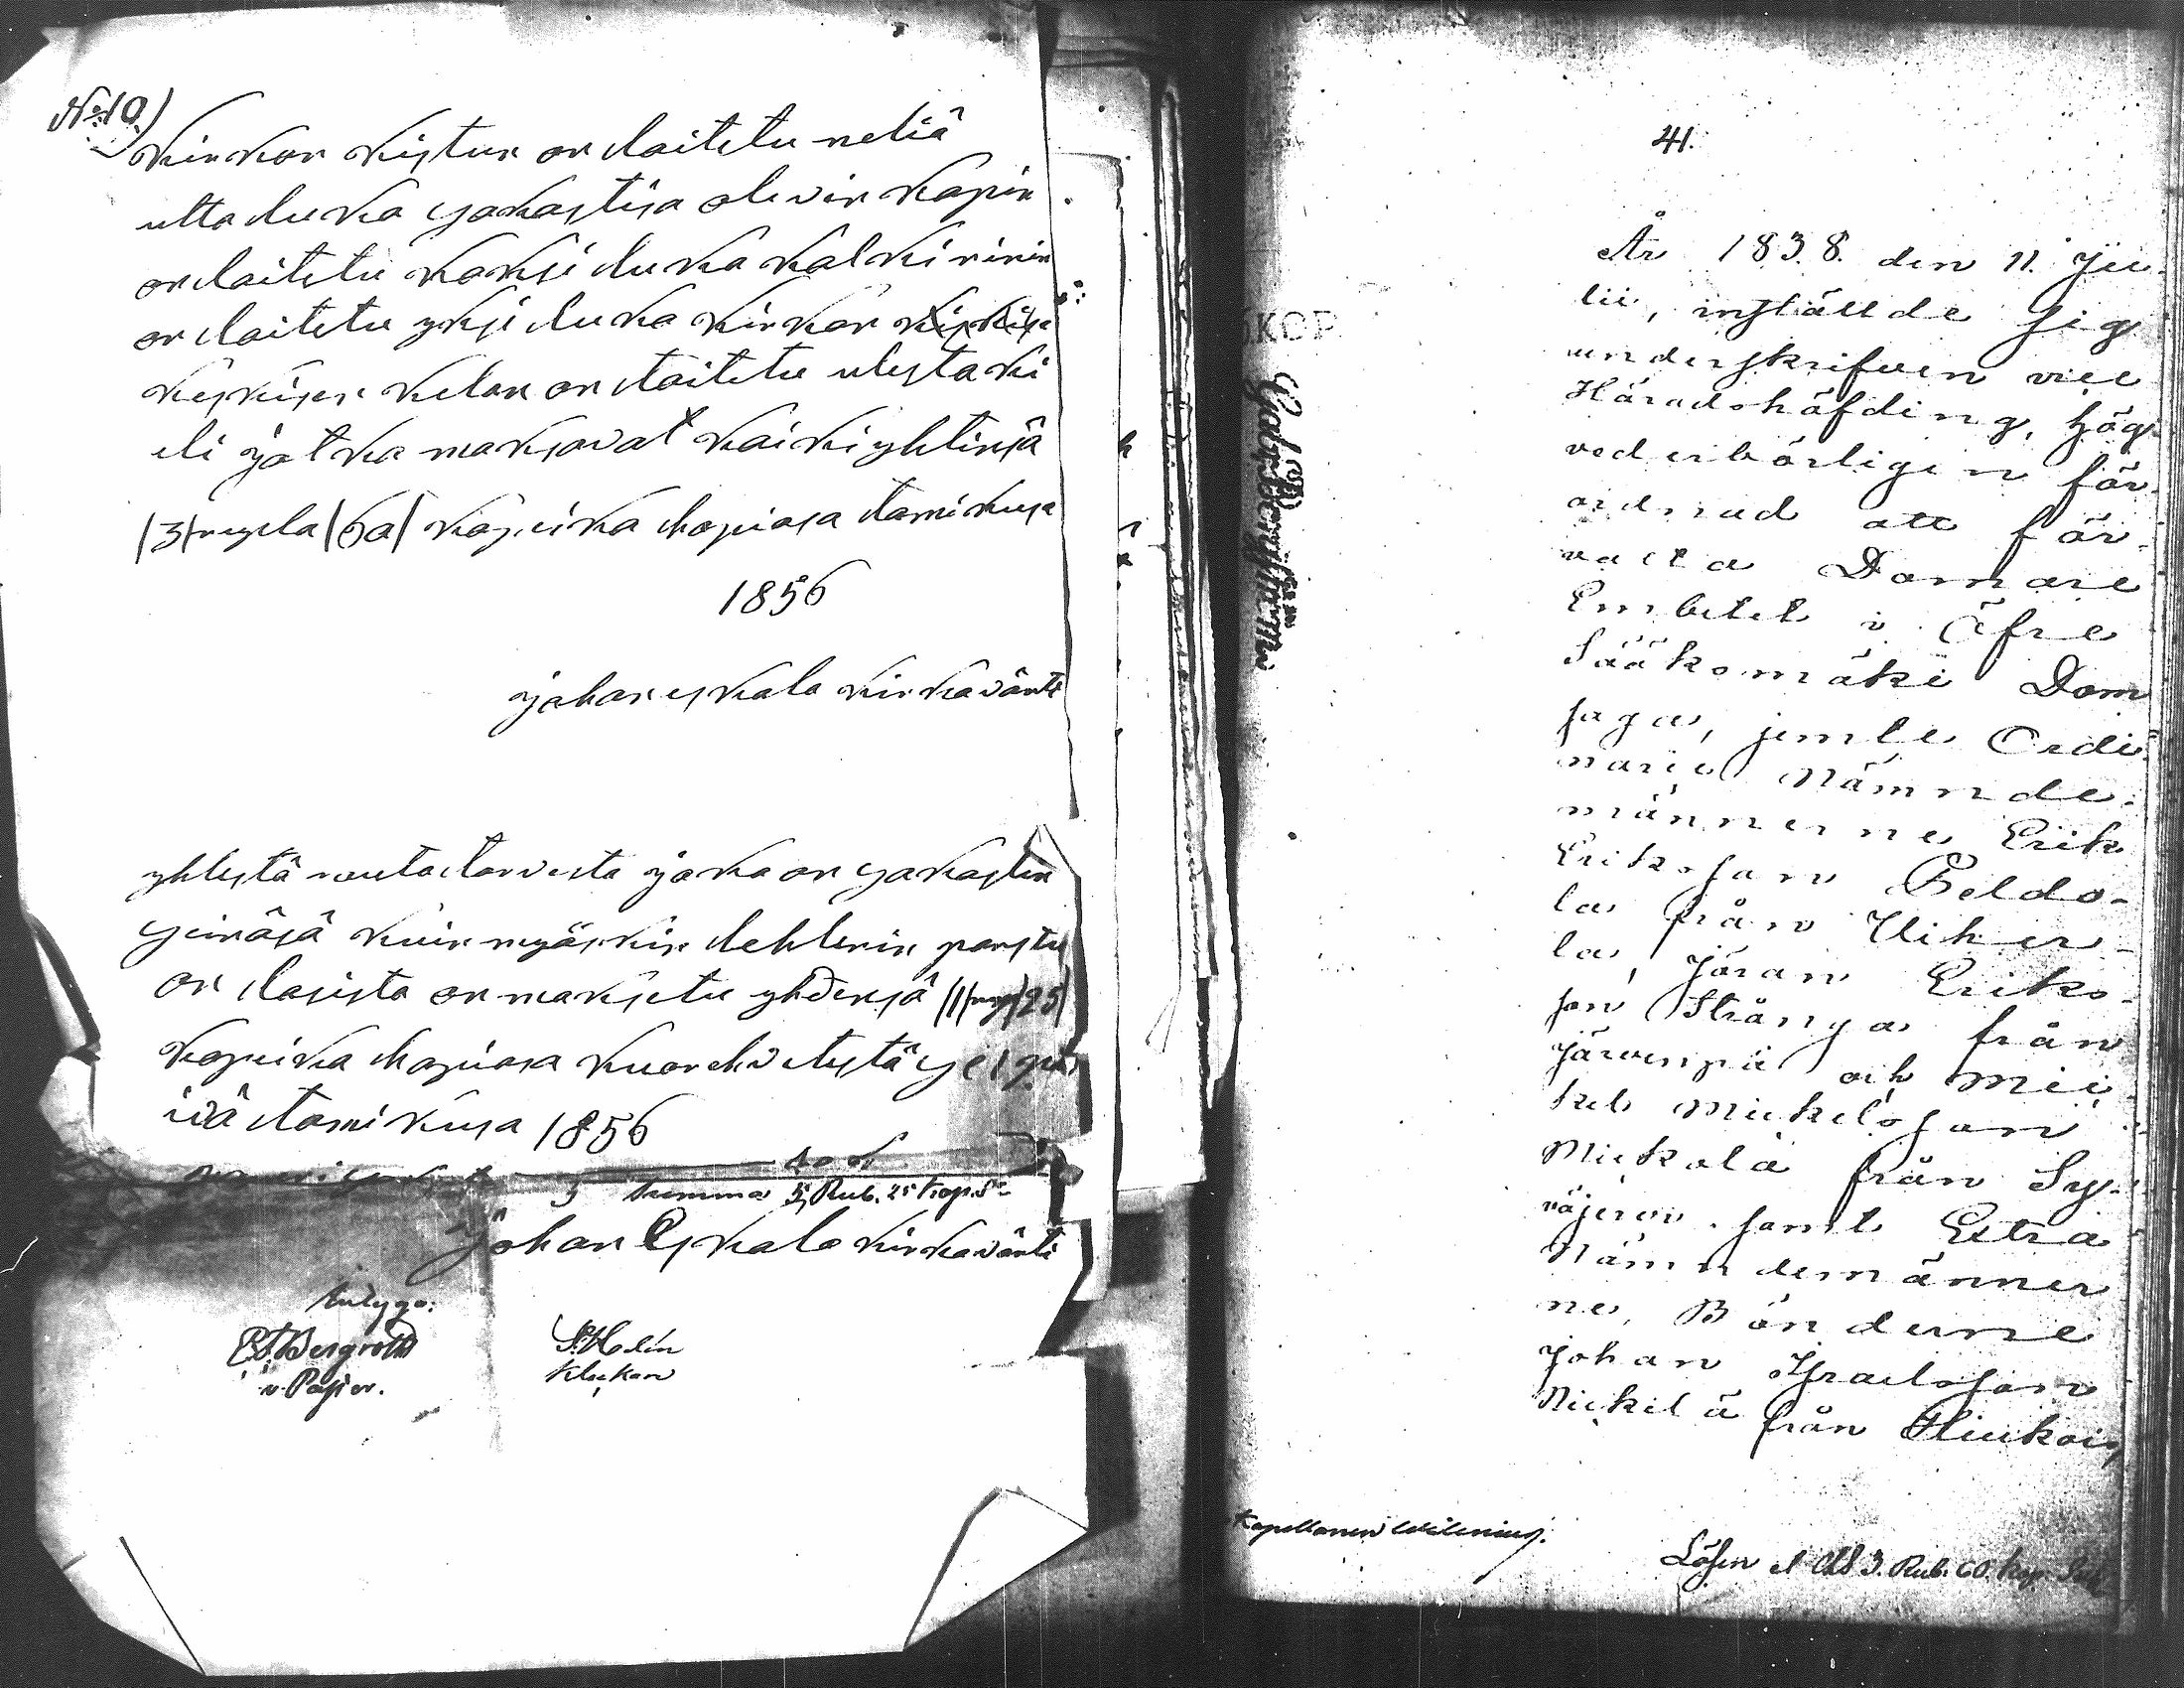 No 10)
kirkon kistun on laitetu neliä
utta luka sakastisa olevin kapin
on laitetu kaksi luka kalkinin
on laitetu yksi luka kirkon
keskisen kelon on laitetu ulestaki
eli jotka maksavat kaiki yhtensä
/3/ rupla /60/ kopeika hopiasa tamikusa
1856
johan eskala kirkovänti
yhlestä rauta tarvesta joka on sakastin
seinäsä kuin myöskin lehterin
on lasista on maksetu yhdensä /1/ rup /25/
kopeika hopiasa
tamikusa 1856
Summa 5, Rub. 25 kop. Sr
Johan Eskala kirkovänti
Intyga:
E. J. Bergroth
v. Pastor.
S. Helin
Klockare
41.
År 1838. den 11. Ju-
lii, instälde sig
underskrifven vice
Häradshöfding, hög
vederbörligen för-
ordnad att för-
valta Domare
Embetet i Öfre
Sääksmäki Dom
saga, jemte Ordi-
narie Nämnde-
männerne Erik
Eriksson Peldo-
la från Uiher-
la, Jöran Eriks-
son Strånga från
Järvenpä och Mic-
kel Mickelsson
Mickola från Sy-
väjerv. samt Extra
Nämndemänner
ne, Bönderne
Johan Israelsson
Nickilä från Hiukois
Kapellanen Wilenius.
Lösen 3. Rub. 60. kop. Silf